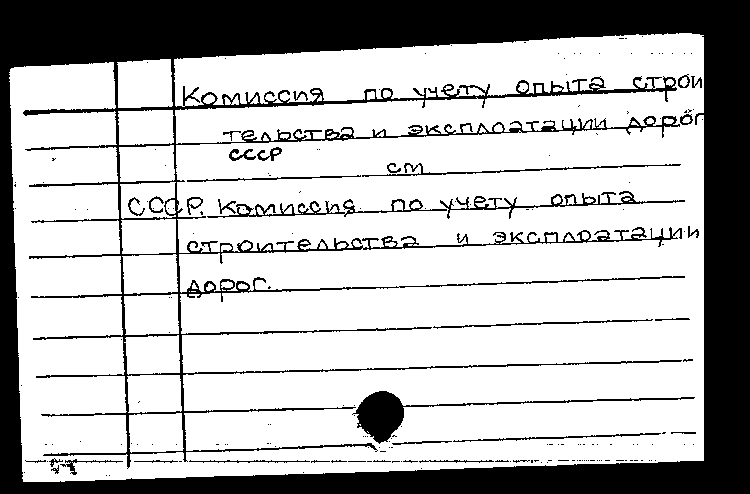 Комиссия по учету опыта строи
тельства и эксплоатации дорог
СССР
см
СССР. Комиссия по учету опыта
строительства и эксплоатации
дорог.